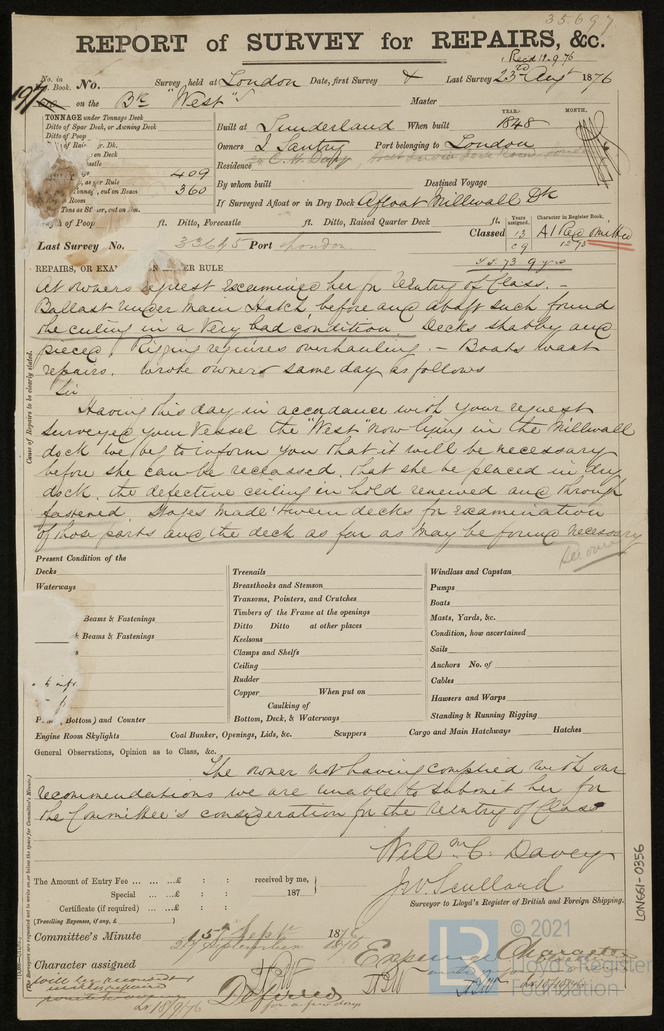 35697
REPORT of SURVEY for REPAIRS, &c.
Recd 18.9.76
No. in Book. No. Survey held at London Date, first Survey & Last Survey 23rd Augt 1876
197 on the Bk "West" Master
TONNAGE under Tonnage Deck
Ditto of Spar Deck, or Awning Deck
Ditto of Poop
on Deck
409
360
Built at Sunderland When built YEAR. 1848 MONTH.
Owners Santry Port belonging to London
Residence
By whom built Destined Voyage
If Surveyed Afloat or in Dry Dock Afloat Millwall Dk
of Poop ft. Ditto, Forecastle ft. Ditto, Raised Quarter Deck ft.
Classed Years assigned. 13 Character in Register Book. A1 Red omitted
12.75
Last Survey No. 33645 Port London
73 9 yrs
REPAIRS, OR EXAMINATION UNDER RULE
At owners request examined her for reentry of Class. –
Ballast under main Hatch, before and abaft such found
the ceiling in a very bad condition. Decks shabby and
pieced. Rigging requires overhauling. – Boats want
repairs. Wrote owners same day as follows
Sir
Having this day in accordance with your request
surveyed your vessel the "West" now lying in the Millwall
dock we beg to inform you that it will be necessary
before she can be reclassed, that she be placed in dry
dock, the defective ceiling in hold renewed and through
fastened. Stages made 'tween decks for examination
of those parts and the deck as far as may be found necessary
Cause of Repairs to be clearly stated.
Present Condition of the
Decks
Waterways
Beams & Fastenings
Beams & Fastenings
(Bottom) and Counter
Treenails
Breasthooks and Stemson
Transoms, Pointers, and Crutches
Timbers of the Frame at the openings
Ditto Ditto at other places
Keelsons
Clamps and Shelfs
Ceiling
Rudder
Copper When put on
Caulking of
Bottom, Deck, & Waterways
Windlass and Capstan
Pumps
Boats
Masts, Yards, &c.
Condition, how ascertained
Sails
Anchors No. of
Cables
Hawsers and Warps
Standing & Running Rigging
Engine Room Skylights Coal Bunker, Openings, Lids, &c. Scuppers Cargo and Main Hatchways Hatches
General Observations, Opinion as to Class, &c.
The owner not having complied with our
recommendations we are unable to submit her for
the Committee's consideration for the reentry of Class
Willm C. Davey
J W Scullard
Surveyor to Lloyd's Register of British and Foreign Shipping.
The Amount of Entry Fee ... ... ...£ : : received by me,
Special ... ...£ : : 187
Certificate (if required) ... ...£ : :
(Travelling Expenses, if any, £ )
Committee's Minute 15th Septr 1876
29 September 1876
Character assigned Deferred for a few days
Expunge Character
18/9/76
LON661-0356
© 2021
LR
Lloyd's Register
Foundation